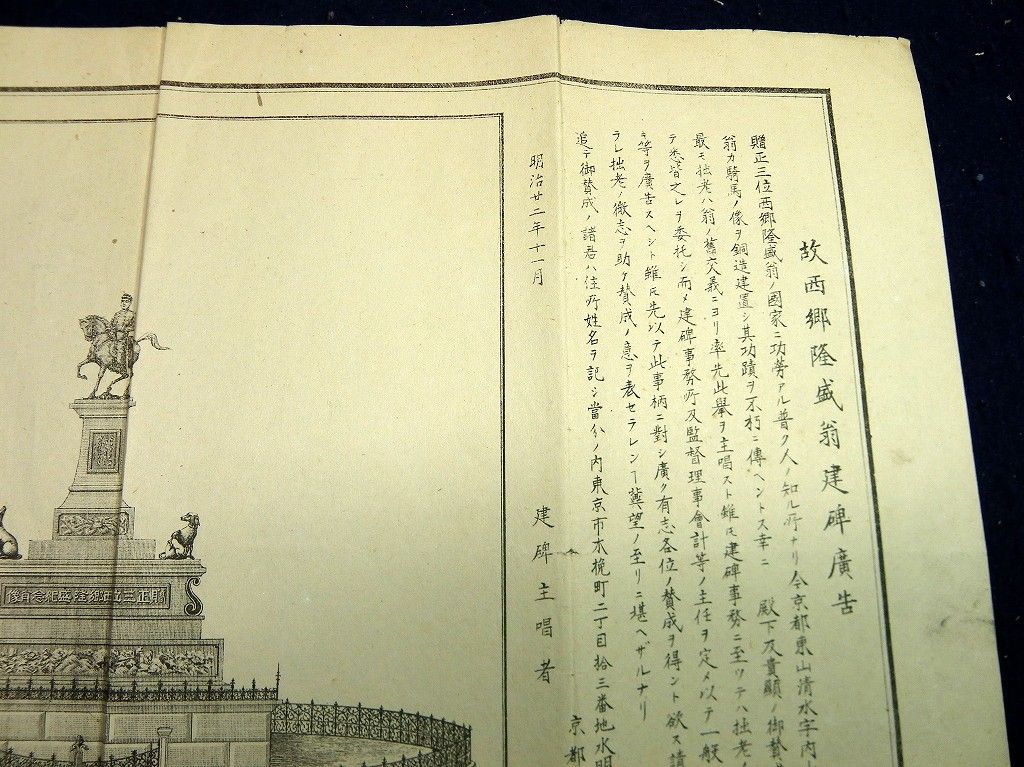 故西郷隆盛翁建碑廣告
贈正三位西郷隆盛翁ノ國家ニ功労アル普ク人ノ知ル所ナリ今京都東山清水字内
翁カ騎馬ノ像ヲ銅造建置シ其功蹟ヲ不朽ニ傳ヘントス幸ニ 殿下及貴顯ノ御賛
最モ拙老ハ翁ノ舊交義ニヨリ率先此擧ヲ主唱スト雖𪜈建碑事務ニ至ツテハ拙老
テ悉皆之レヲ委托シ而メ建碑事務所及監督理事會計等ノ主任ヲ定メ以テ一般
キ等ヲ廣告スヘシト雖𪜈先以テ此事柄ニ對シ廣ク有志各位ノ賛成ヲ得ント欲ス請
ラレ拙老ノ微志ヲ助ケ賛成ノ意ヲ表セラレンヿ冀望ノ至リニ堪ヘザルナリ
追テ御賛成ノ諸君ハ住所姓名ヲ記シ當分ノ内東京市木挽町二丁目拾三番地水明
京都
明治廿二年十一月
建碑主唱者
贈正三位西郷隆盛紀念肖像